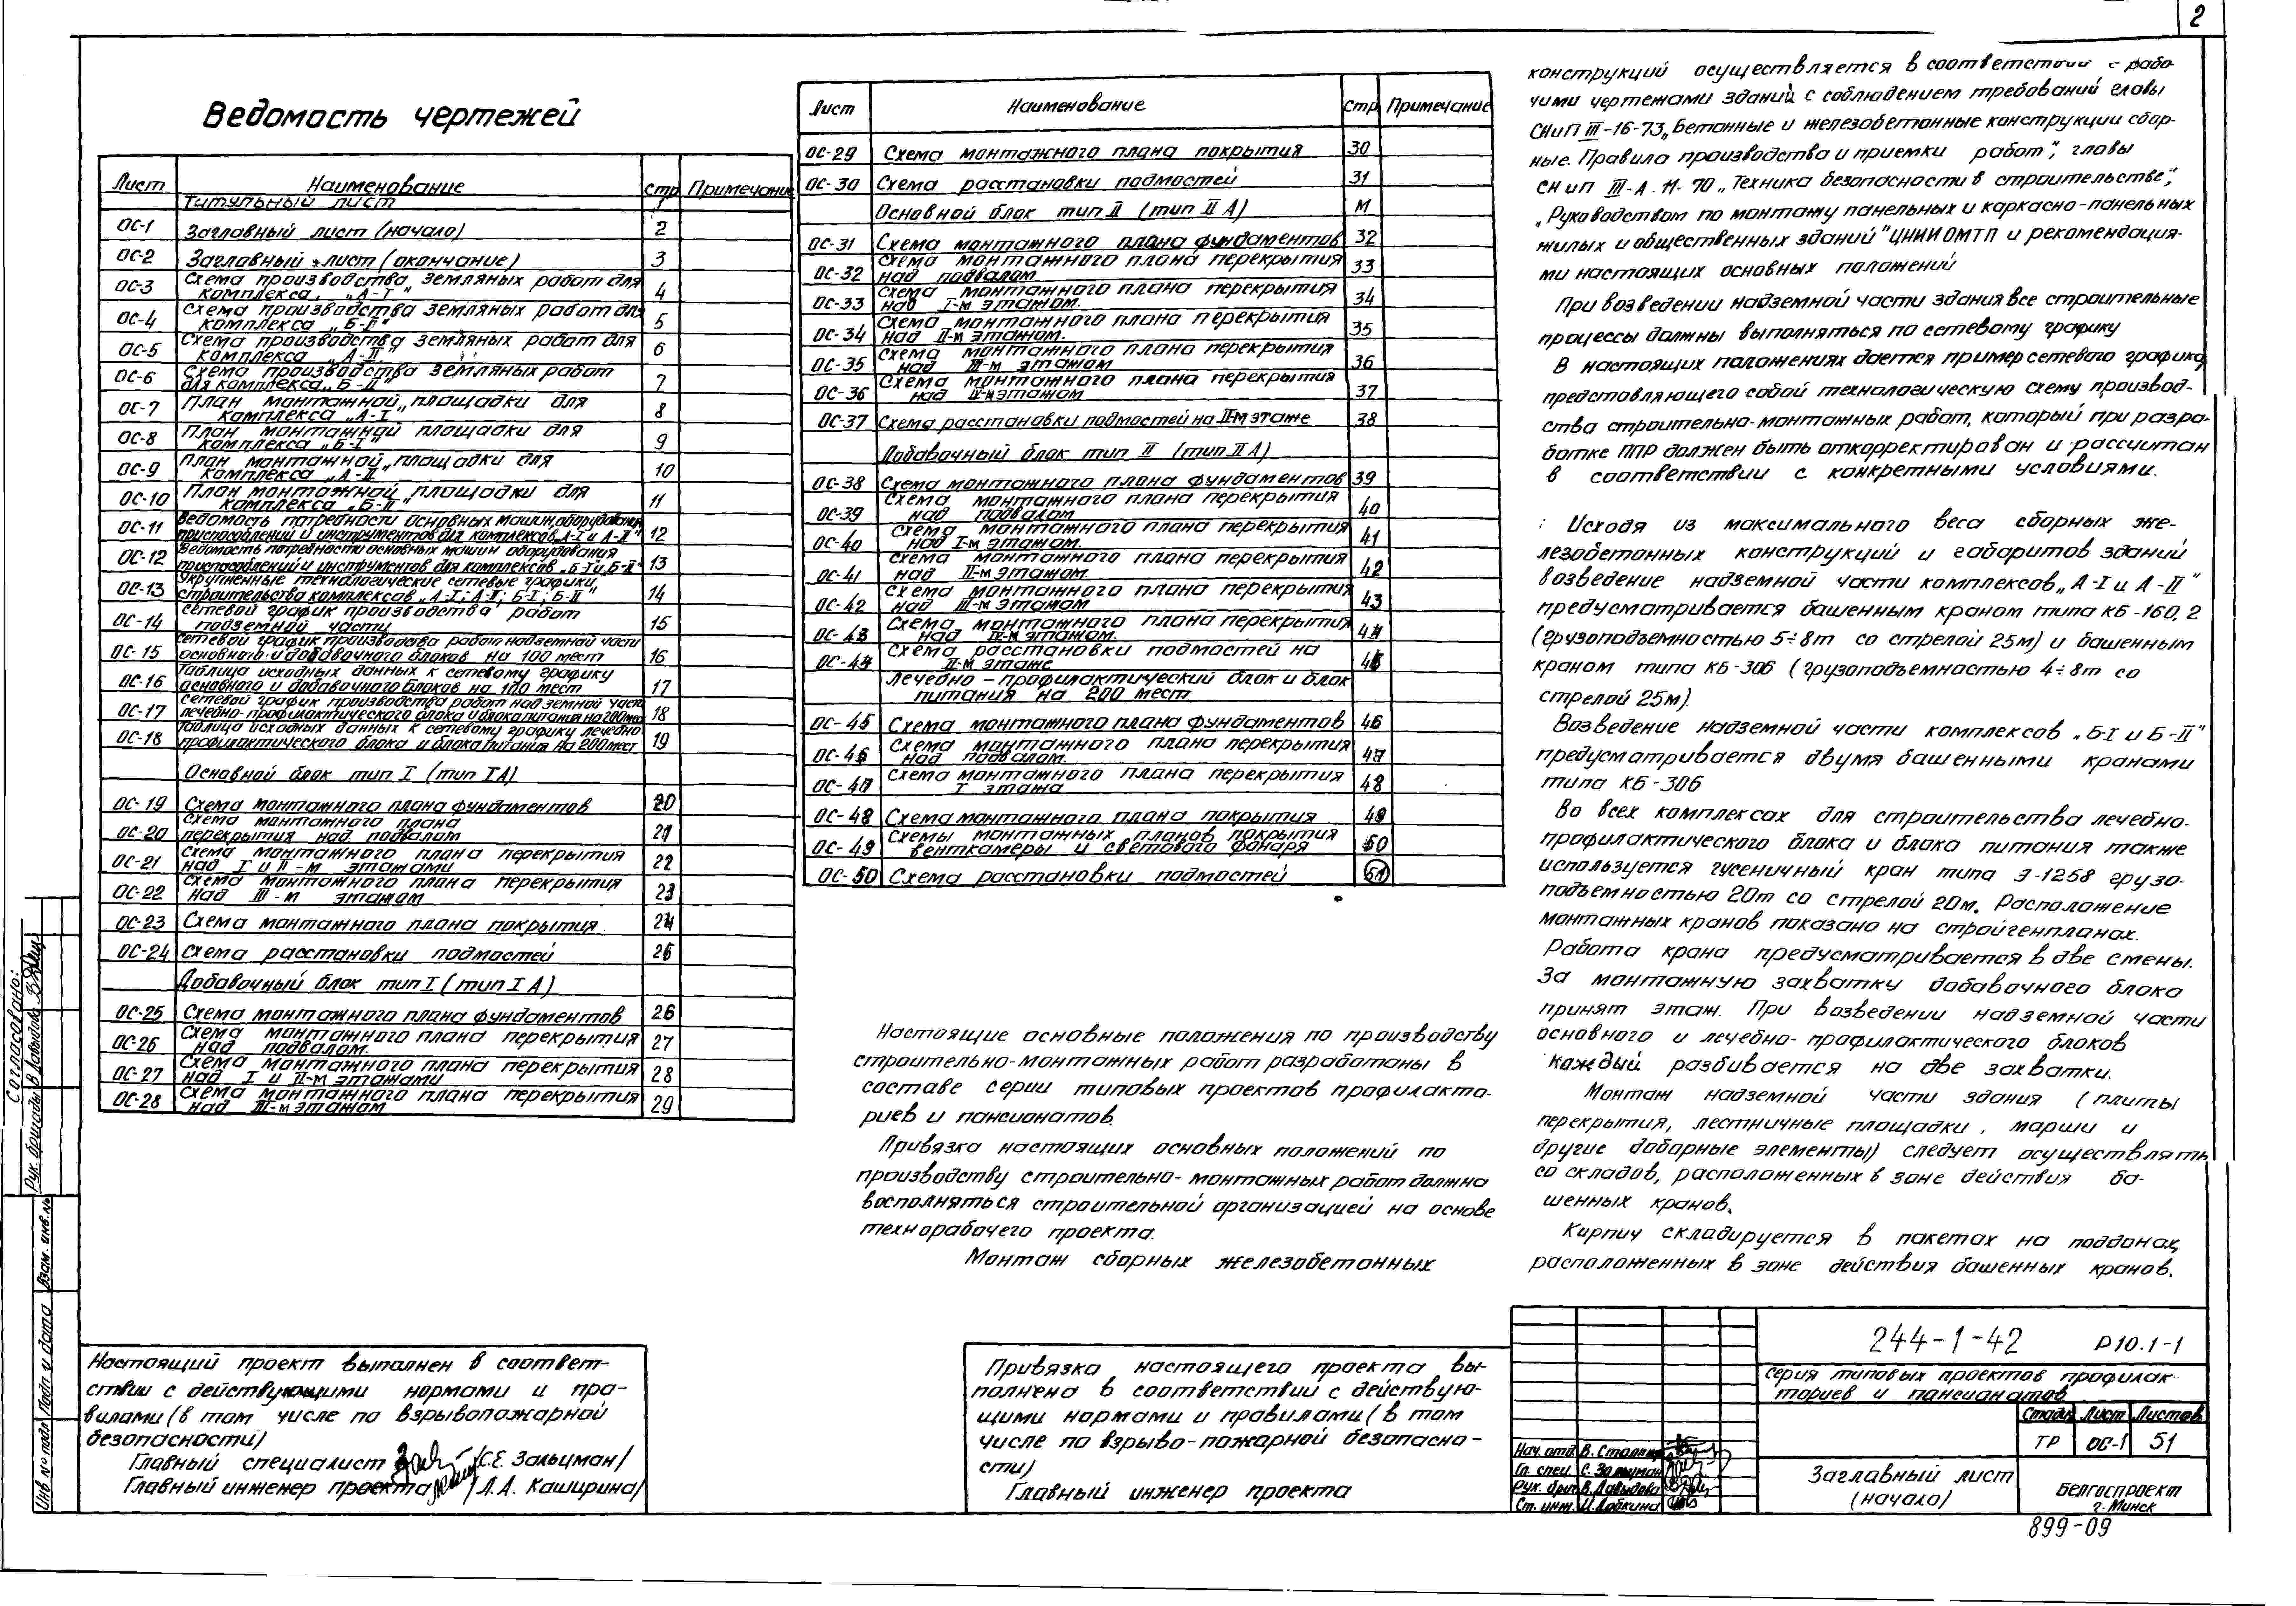 2
Ведомость чертежей
Лист Наименование Стр Примечание
Титульный лист 1
ОС-1 Заглавный лист (начало) 2
ОС-2 Заглавный лист (окончание) 3
ОС-3 Схема производства земляных работ для
комплекса „А-I" 4
ОС-4 Схема производства земляных работ для
комплекса „Б-II" 5
ОС-5 Схема производства земляных работ для
комплекса „А-II" 6
ОС-6 Схема производства земляных работ
для комплекса „Б-II" 7
ОС-7 План монтажной площадки для
комплекса „А-I 8
ОС-8 План монтажной площадки для
комплекса „Б-I" 9
ОС-9 План монтажной площадки для
комплекса „А-II" 10
ОС-10 План монтажной площадки для
комплекса „Б-II" 11
ОС-11 Ведомость потребности основных машин, оборудования
приспособлений и инструментов для комплексов „А-I и А-II" 12
ОС-12 Ведомость потребности основных машин оборудования
приспособлений и инструментов для комплексов „Б-I и Б-II" 13
ОС-13 Укрупненные технологические сетевые графики,
строительства комплексов „А-I; А-II; Б-I; Б-II" 14
ОС-14 Сетевой график производства работ
подземной части 15
ОС-15 Сетевой график производства работ надземной части
основного и добавочного блоков на 100 мест 16
ОС-16 Таблица исходных данных к сетевому графику
основного и добавочного блоков на 100 мест 17
ОС-17 Сетевой график производства работ надземной части
лечебно-профилактического блока и блока питания на 200 мест 18
ОС-18 Таблица исходных данных к сетевому графику лечебно
профилактического блока и блока питания на 200 мест 19
Основной блок тип I (тип IА)
ОС-19 Схема монтажного плана фундаментов 20
ОС-20 Схема монтажного плана
перекрытия над подвалом 21
ОС-21 Схема монтажного плана перекрытия
над I и II-м этажами 22
ОС-22 Схема монтажного плана перекрытия
над III-м этажом 23
ОС-23 Схема монтажного плана покрытия 24
ОС-24 Схема расстановки подмостей 25
Добавочный блок тип I (тип I А)
ОС-25 Схема монтажного плана фундаментов 26
ОС-26 Схема монтажного плана перекрытия
над подвалом. 27
ОС-27 Схема монтажного плана перекрытия
над I и II-м этажами 28
ОС-28 Схема монтажного плана перекрытия
над III-м этажом 29
Лист Наименование Стр Примечание
ОС-29 Схема монтажного плана покрытия 30
ОС-30 Схема расстановки подмостей 31
Основной блок тип II (тип II А) М
ОС-31 Схема монтажного плана фундаментов 32
ОС-32 Схема монтажного плана перекрытия
над подвалом 33
ОС-33 Схема монтажного плана перекрытия
над I-м этажом. 34
ОС-34 Схема монтажного плана перекрытия
над II-м этажом. 35
ОС-35 Схема монтажного плана перекрытия
над III-м этажом 36
ОС-36 Схема монтажного плана перекрытия
над IV-м этажом 37
ОС-37 Схема расстановки подмостей на II-м этаже 38
Добавочный блок тип II (тип II А)
ОС-38 Схема монтажного плана фундаментов 39
ОС-39 Схема монтажного плана перекрытия
над подвалом 40
ОС-40 Схема монтажного плана перекрытия
над I-м этажом. 41
ОС-41 Схема монтажного плана перекрытия
над II-м этажом. 42
ОС-42 Схема монтажного плана перекрытия
над III-м этажом 43
ОС-43 Схема монтажного плана перекрытия
над IV-м этажом. 44
ОС-44 Схема расстановки подмостей на
II-м этаже 45
Лечебно-профилактический блок и блок
питания на 200 мест.
ОС-45 Схема монтажного плана фундаментов 46
ОС-46 Схема монтажного плана перекрытия
над подвалом. 47
ОС-47 Схема монтажного плана перекрытия
I этажа 48
ОС-48 Схема монтажного плана покрытия 49
ОС-49 Схемы монтажных планов покрытия
венткамеры и светового фонаря 50
ОС-50 Схема расстановки подмостей 51
Настоящие основные положения по производству
строительно-монтажных работ разработаны в
составе серии типовых проектов профилакто-
риев и пансионатов.
Привязка настоящих основных положений по
производству строительно-монтажных работ должна
восполняться строительной организацией на основе
технорабочего проекта.
Монтаж сборных железобетонных
конструкций осуществляется в соответствии с рабо
чими чертежами зданий с соблюдением требований главы
СНиП III-16-73 „Бетонные и железобетонные конструкции сбор-
ные. Правила производства и приемки работ", главы
СНиП III-А.11-70 „Техника безопасности в строительстве",
„Руководством по монтажу панельных и каркасно-панельных
жилых и общественных зданий" ЦНИИОМТП и рекомендация-
ми настоящих основных положений
При возведении надземной части здания все строительные
процессы должны выполняться по сетевому графику
В настоящих положениях дается пример сетевого графика,
представляющего собой технологическую схему производ-
ства строительно-монтажных работ, который при разра-
ботке ППР должен быть откорректирован и рассчитан
в соответствии с конкретными условиями.
Исходя из максимального веса сборных же-
лезобетонных конструкций и габаритов зданий
возведение надземной части комплексов „А-I и А-II"
предусматривается башенным краном типа КБ-160,2
(грузоподъемностью 5÷8т со стрелой 25м) и башенным
краном типа КБ-306 (грузоподъемностью 4÷8т со
стрелой 25м).
Возведение надземной части комплексов „Б-I и Б-II"
предусматривается двумя башенными кранами
типа КБ-306
Во всех комплексах для строительства лечебно-
профилактического блока и блока питания также
используется гусеничный кран типа Э-1258 грузо-
подъемностью 20т со стрелой 20м. Расположение
монтажных кранов показано на стройгенпланах.
Работа крана предусматривается в две смены.
За монтажную захватку добавочного блока
принят этаж. При возведении надземной части
основного и лечебно-профилактического блоков
каждый разбивается на две захватки.
Монтаж надземной части здания (плиты
перекрытия, лестничные площадки, марши и
другие доборные элементы) следует осуществлять
со складов, расположенных в зоне действия ба-
шенных кранов.
Кирпич складируется в пакетах на поддонах,
расположенных в зоне действия башенных кранов.
Настоящий проект выполнен в соответ-
ствии с действующими нормами и пра-
вилами (в том числе по взрывопожарной
безопасности)
Главный специалист /С.Е. Зальцман/
Главный инженер проекта /Л.А. Каширина/
Привязка настоящего проекта вы-
полнена в соответствии с действую-
щими нормами и правилами (в том
числе по взрыво-пожарной безопасно-
сти)
Главный инженер проекта
244-1-42 Р10.1-1
серия типовых проектов профилак-
ториев и пансионатов
Стадия Лист Листов
ТР ОС-1 51
Нач. отд. В.
Гл. спец. С. Зальцман
Рук. бриг. В. Давыдова
Ст. инж. И. Лобкина
Заглавный лист
(начало)
Белгоспроект
г. Минск
899-09
Согласовано:
Рук. бригады В. Давыдова
Взам. инв. №
Подп и дата
Инв № подл